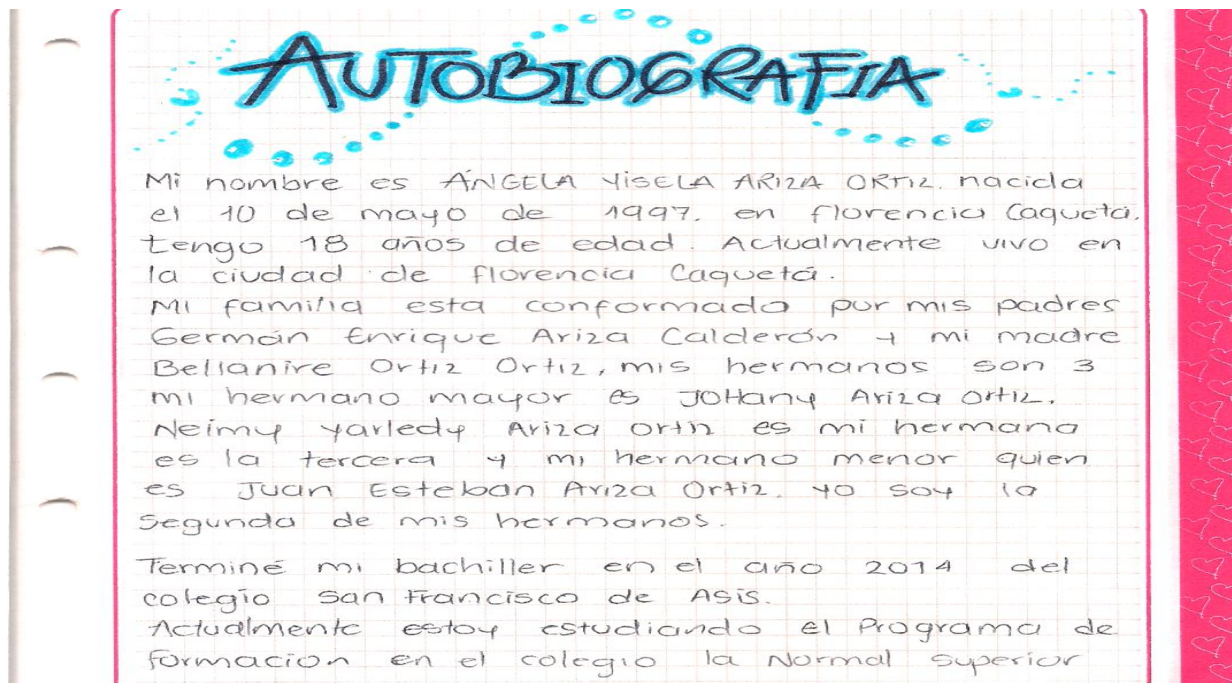 AUTOBIOGRAFIA
Mi nombre es ÁNGELA YISELA ARIZA ORTIZ. nacida
el 10 de mayo de 1997. en florencia Caquetá.
tengo 18 años de edad. Actualmente vivo en
la ciudad de florencia Caquetá.
Mi familia esta conformado por mis padres
Germán Enrique Ariza Calderón y mi madre
Bellanire Ortiz Ortiz, mis hermanos son 3
mi hermano mayor es JOHany Ariza Ortiz.
Neimy yarledy Ariza Ortiz es mi hermana
es la tercera y mi hermano menor quien
es Juan Esteban Ariza Ortiz. yo soy la
Segunda de mis hermanos.
Terminé mi bachiller en el año 2014 del
colegio San Francisco de Asis.
Actualmente estoy estudiando el Programa de
formacion en el colegio la Normal Superior